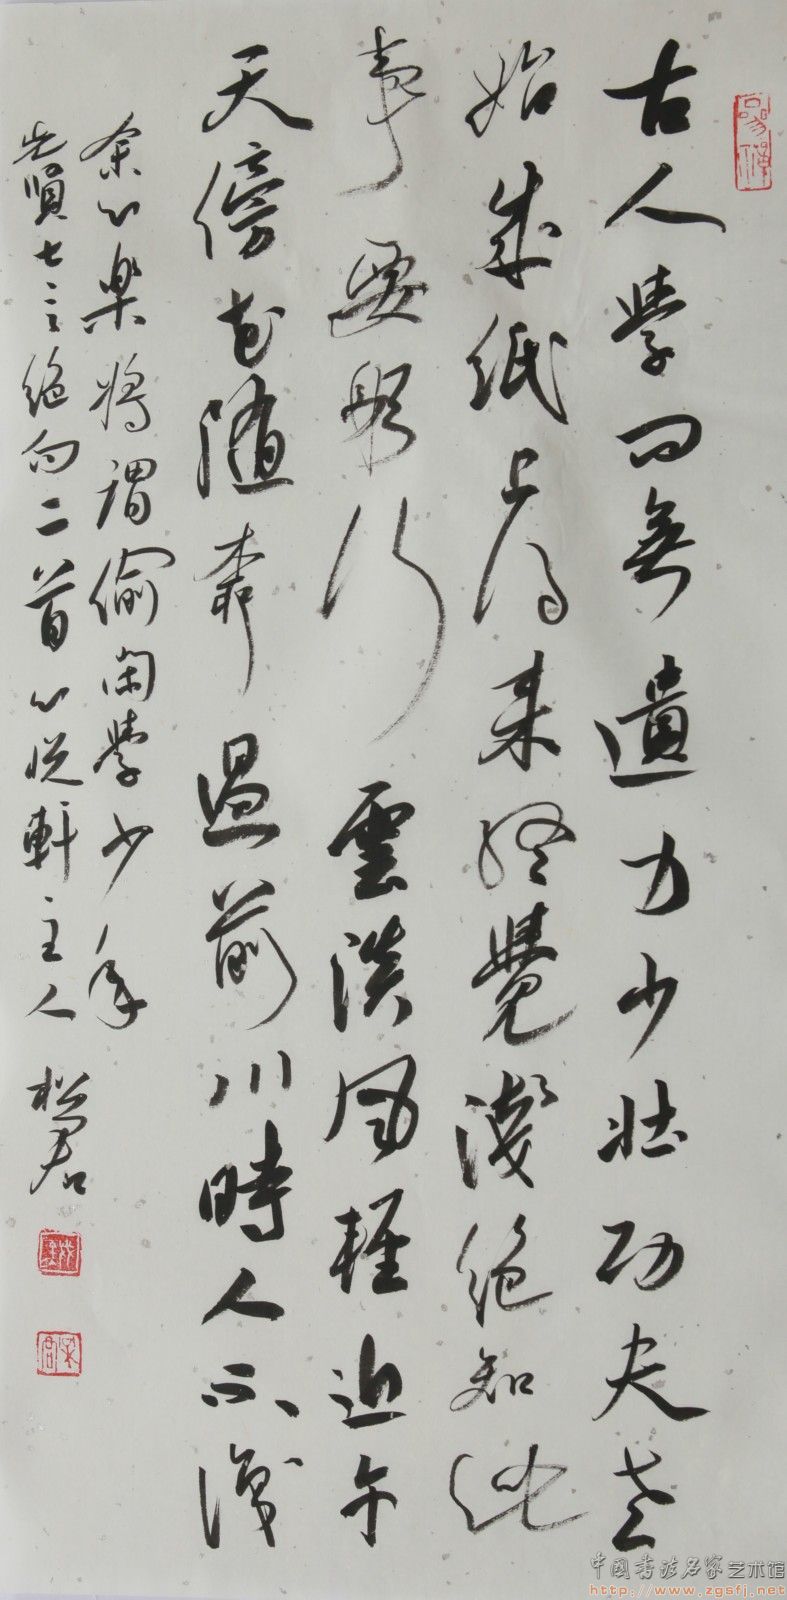 古人學問無遺力少壯功夫老
始成紙上得來終覺淺絕知此
事要躬行雲淡風輕近午
天傍花隨柳過前川時人不識
余心樂將謂偷閑學少年
先賢七言絕句二首心悅軒主人 松君
中國書法名家艺术馆
http://www.zgsfj.net